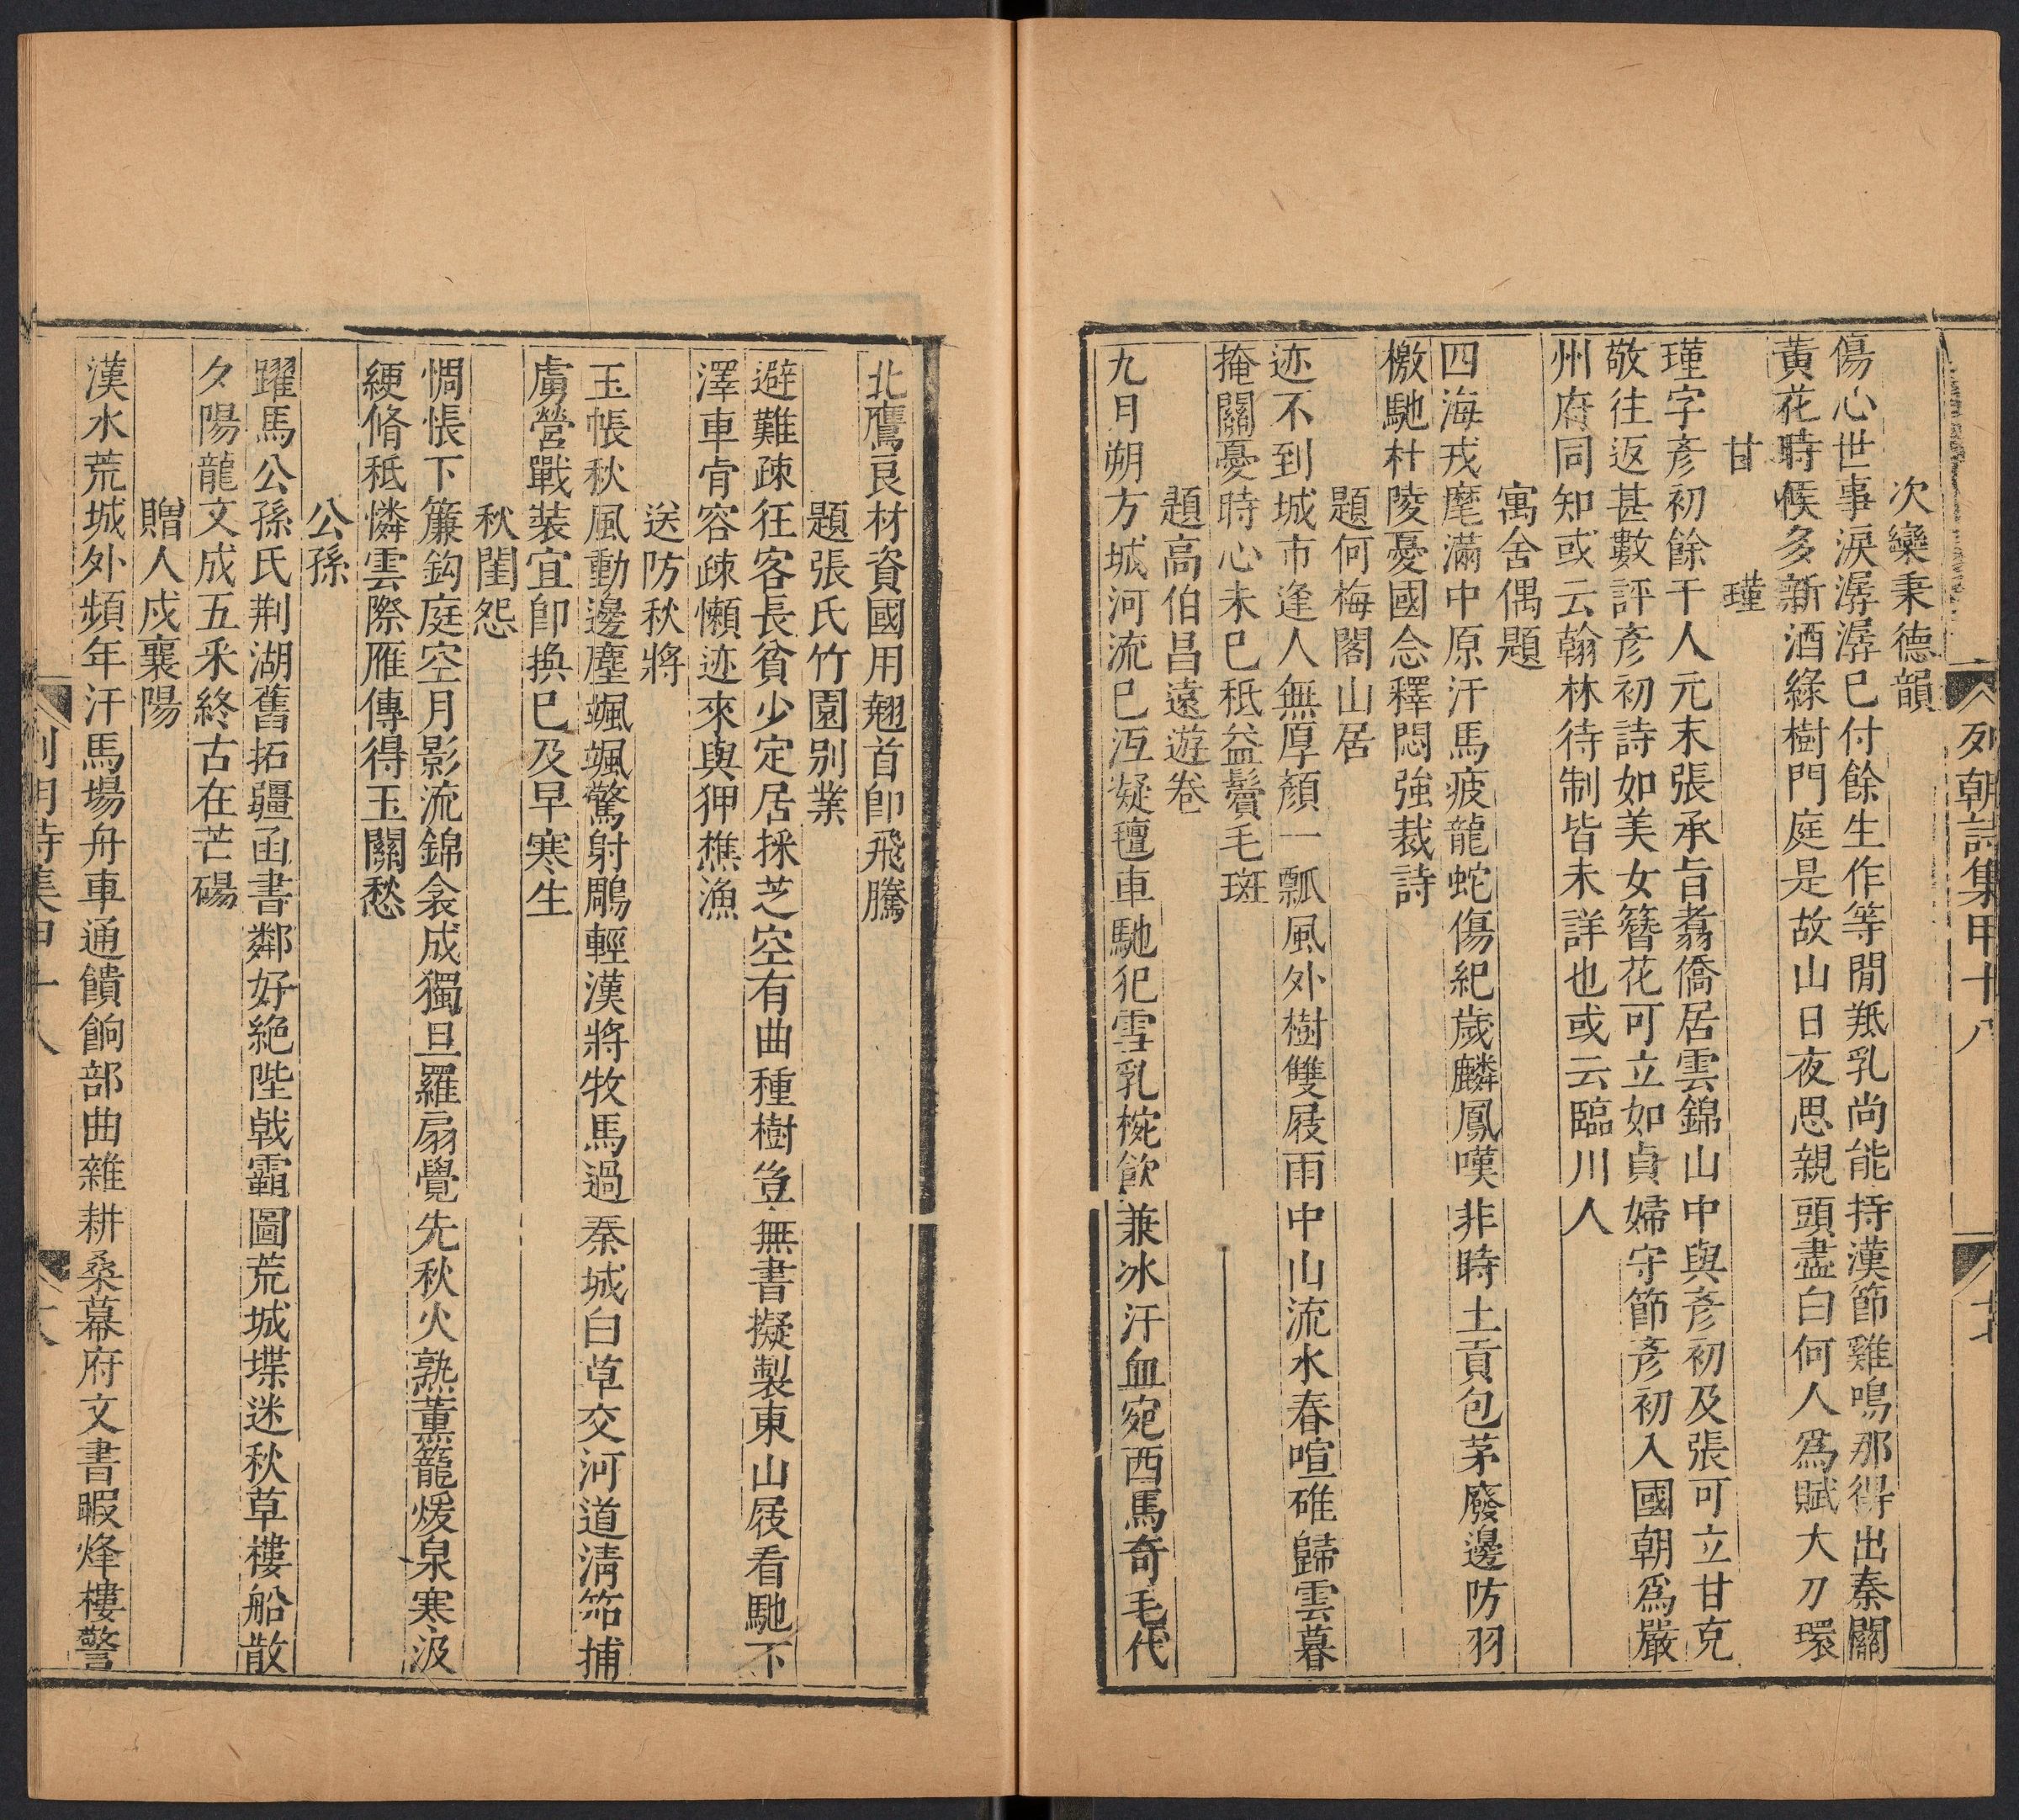 列朝詩集甲十八
次欒秉德韻
傷心世事淚潺潺已付餘生作等閒羝乳尚能持漢節雞鳴那得出秦關
黃花時候多新酒綠樹門庭是故山日夜思親頭盡白何人爲賦大刀環
甘瑾
瑾字彥初餘干人元末張承旨翥僑居雲錦山中與彥初及張可立甘克
敬往返甚數評彥初詩如美女簪花可立如貞婦守節彥初入國朝爲嚴
州府同知或云翰林待制皆未詳也或云臨川人
寓舍偶題
四海戎麾滿中原汗馬疲龍蛇傷紀歲麟鳳嘆非時土貢包茅廢邊防羽
檄馳杜陵憂國念釋悶強裁詩
題何梅閣山居
迹不到城市逢人無厚顏一瓢風外樹雙屐雨中山流水春喧碓歸雲暮
掩關憂時心未已秪益鬢毛斑
題高伯昌遠遊卷
九月朔方城河流已沍凝氊車馳犯雪乳椀飲兼冰汗血宛西馬奇毛代
北鷹良材資國用翹首卽飛騰
題張氏竹園別業
避難疎狂客長貧少定居採芝空有曲種樹豈無書擬製東山屐看馳下
澤車肯容疎懶迹來與狎樵漁
送防秋將
玉帳秋風動邊塵颯颯驚射鵰輕漢將牧馬過秦城白草交河道清笳捕
虜營戰裝宜卽換已及早寒生
秋閨怨
惆悵下簾鈎庭空月影流錦衾成獨旦羅扇覺先秋火熟薰籠煖泉寒汲
綆脩秪憐雲際雁傳得玉關愁
公孫
躍馬公孫氏荆湖舊拓疆函書鄰好絶陛戟霸圖荒城堞迷秋草樓船散
夕陽龍文成五釆終古在芒碭
贈人戍襄陽
漢水荒城外頻年汗馬場舟車通饋餉部曲雜耕桑幕府文書暇烽樓警